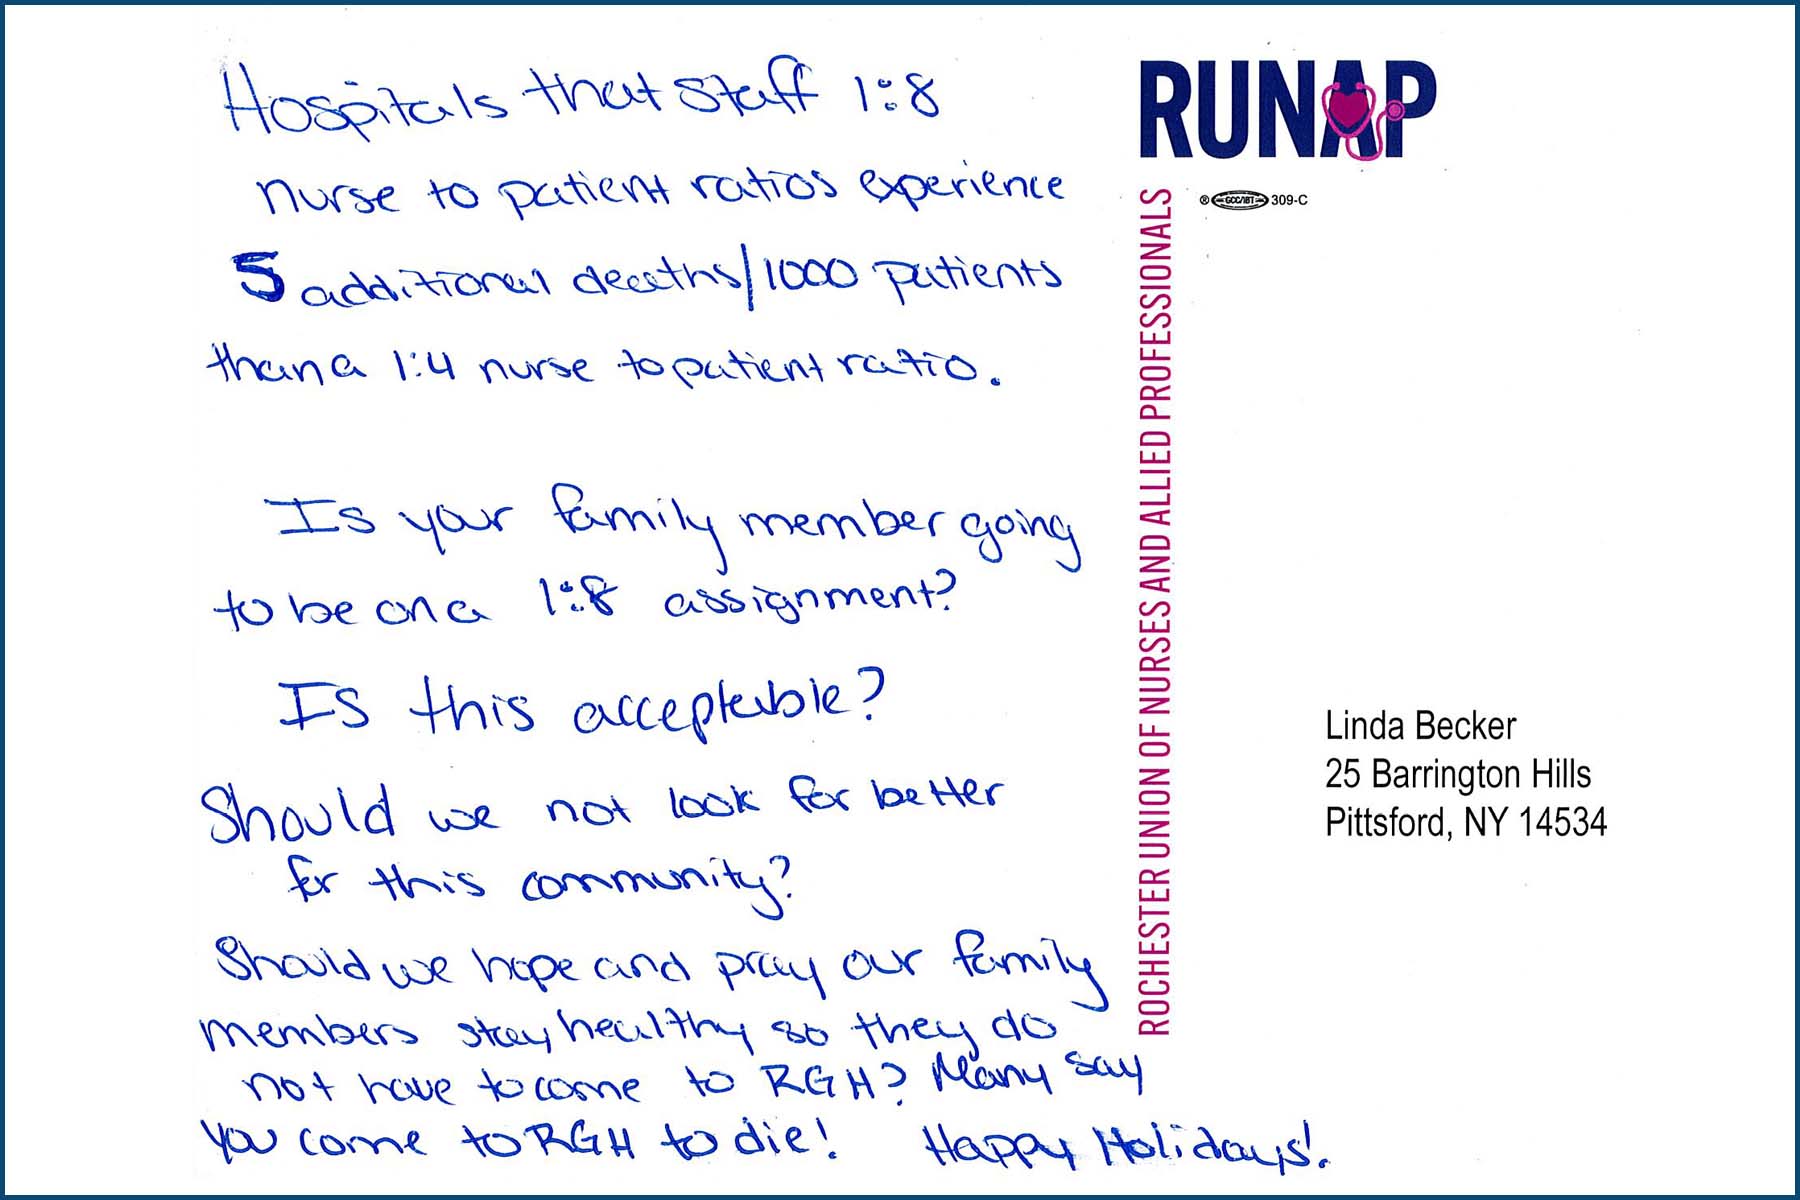 Hospitals that staff 1:8
nurse to patient ratios experience
5 additional deaths/1000 patients
than a 1:4 nurse to patient ratio.
Is your family member going
to be on a 1:8 assignment?
Is this acceptable?
Should we not look for better
for this community?
Should we hope and pray our family
members stay healthy so they do
not have to come to RGH? Many say
you come to RGH to die! Happy Holidays!
RUNAP
® GCC/IBT 309-C
ROCHESTER UNION OF NURSES AND ALLIED PROFESSIONALS
Linda Becker
25 Barrington Hills
Pittsford, NY 14534